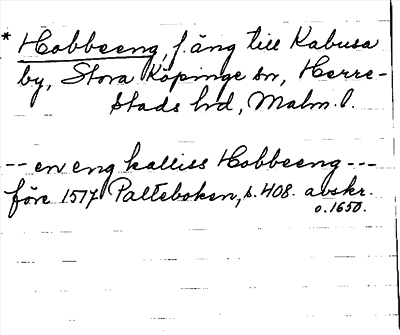 * Hobbeeng, f. äng till Kabusa
by, Stora Köpinge sn, Herre-
stads hd, Malm. l.
-- en eng kalliss Hobbeeng ---
före 1517 Palteboken, s. 408. avskr.
o. 1650.